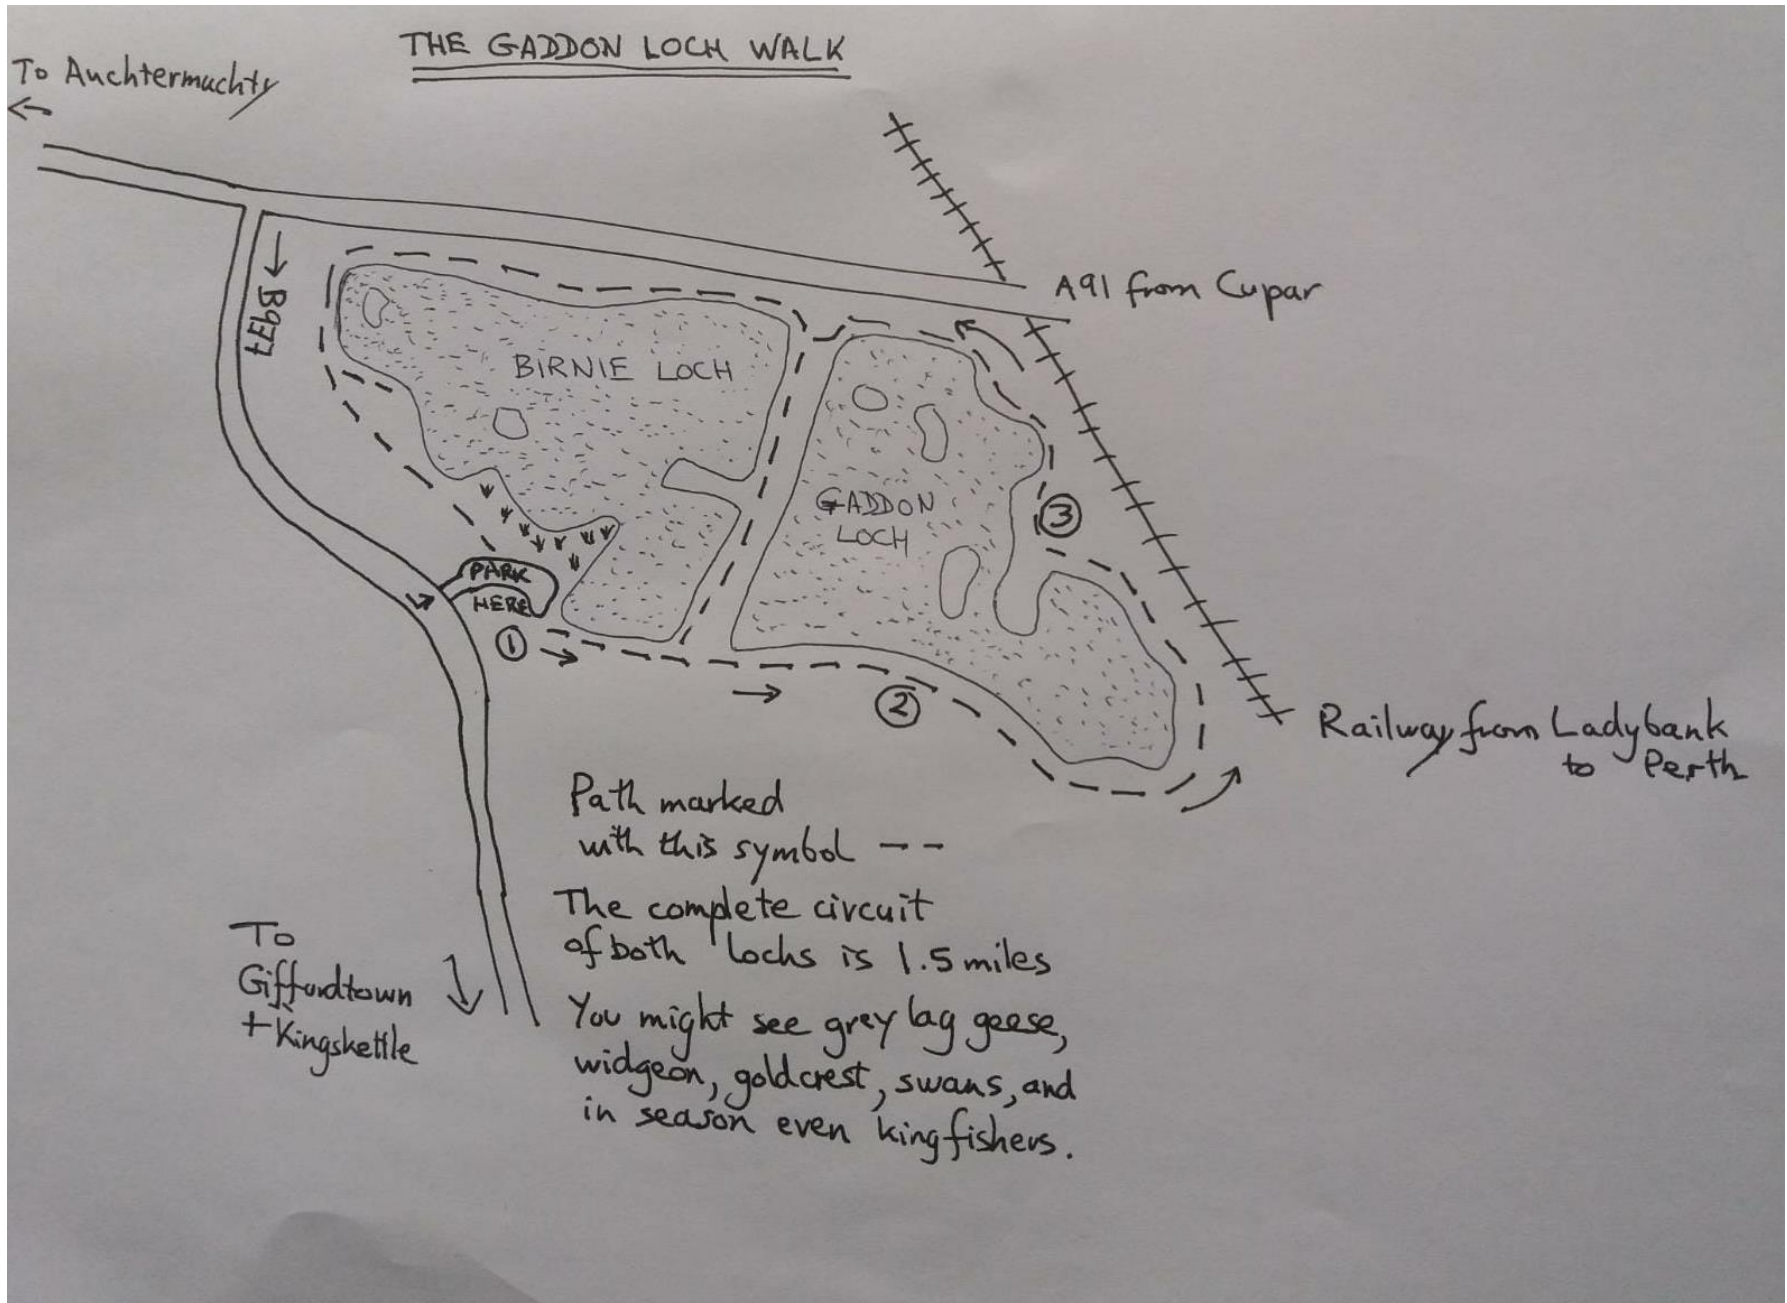 THE GADDON LOCH WALK
To Auchtermuchty
A91 from Cupar
B937
BIRNIE LOCH
GADDON
LOCH
3
PARK
HERE
1
2
Railway from Ladybank
to Perth
Path marked
with this symbol --
The complete circuit
of both lochs is 1.5 miles
To
Giffordtown
+ Kingskettle
You might see grey lag geese,
widgeon, goldcrest, swans, and
in season even kingfishers.